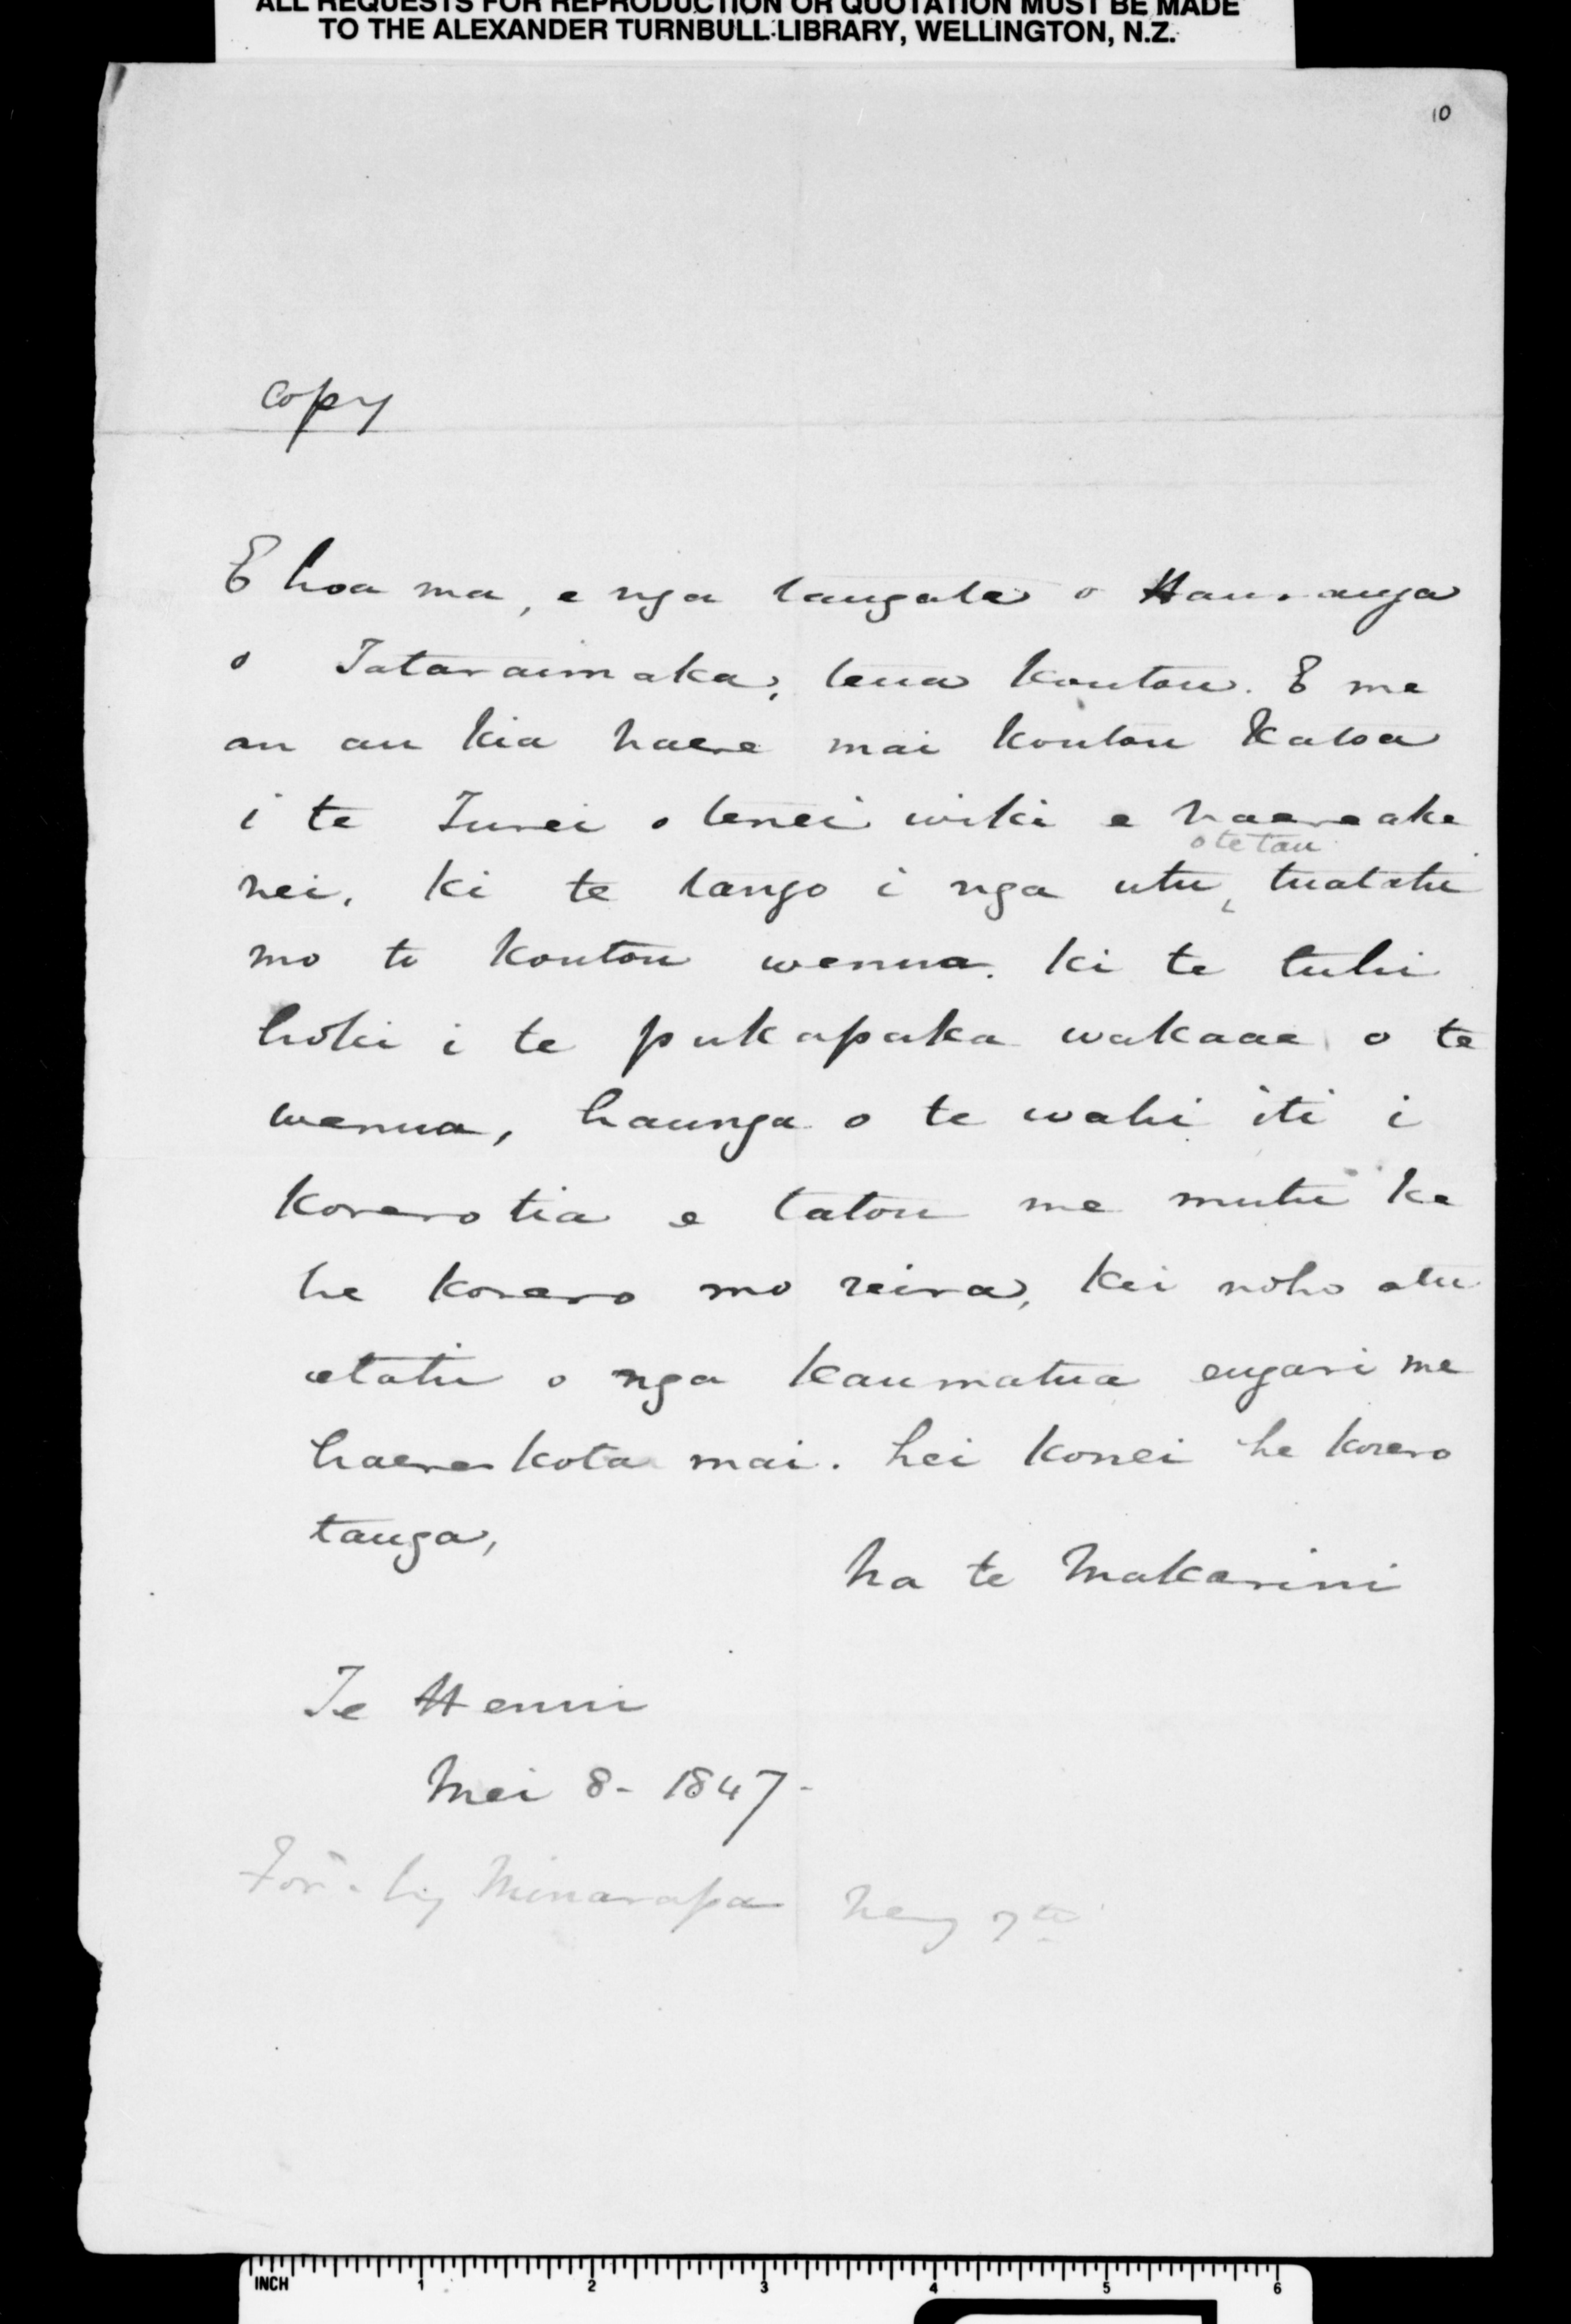 ALL REQUESTS FOR REPRODUCTION OR QUOTATION MUST BE MADE
TO THE ALEXANDER TURNBULL LIBRARY, WELLINGTON, N.Z.
10
Copy
E hoa ma, e nga tangata o Hauranga
o Tataraimaka, tena koutou. E me
an au kia haere mai koutou katoa
i te Turei o tenei wiki e haere ake
nei, ki te tango i nga utu tuatahi
o te tau
mo to koutou wenua. ki te tuhi
hoki i te pukapuka wakaae o te
wenua, haunga o te wahi iti i
korerotia e tatou me mutu ke
he korero mo reira, kei noho atu
etahi o nga kaumatua engari me
haere kota mai. hei konei he korero
tanga,
Na te Makarini
Te Henui
Mei 8 - 1847 -
by Minarapa
INCH 1 2 3 4 5 6